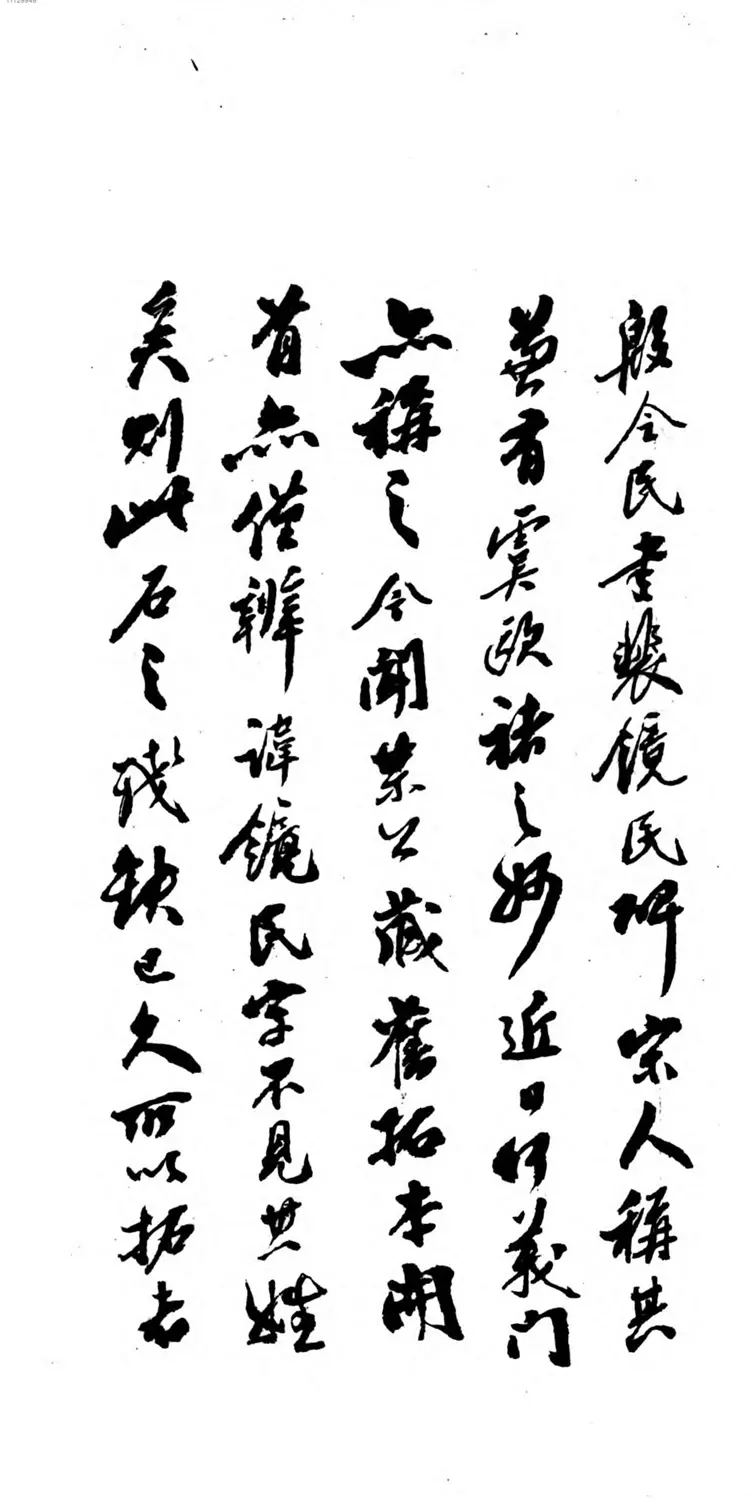 殷令民書裴鏡民碑宋人稱其
兼有虞歐褚之妙近日何義門
亦稱之今聞某公藏舊拓本開
首亦僅辨諱鏡民字不見其姓
矣則此石之殘缺已久所以拓者